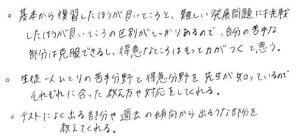 。基本から復習したほうが良いところと、難しい発展問題に挑戦
したほうが良いところの区別がしっかりあるので、自分の苦手な
部分は克服できるし、得意なところはもっと力がつくと思う。
。生徒一人ひとりの苦手分野と得意分野を先生が知っているが
それぞれに合った教え方や対応をしてくれる。
。テストによく出る部分や過去の傾向から出そうな部分を
教えてくれる。